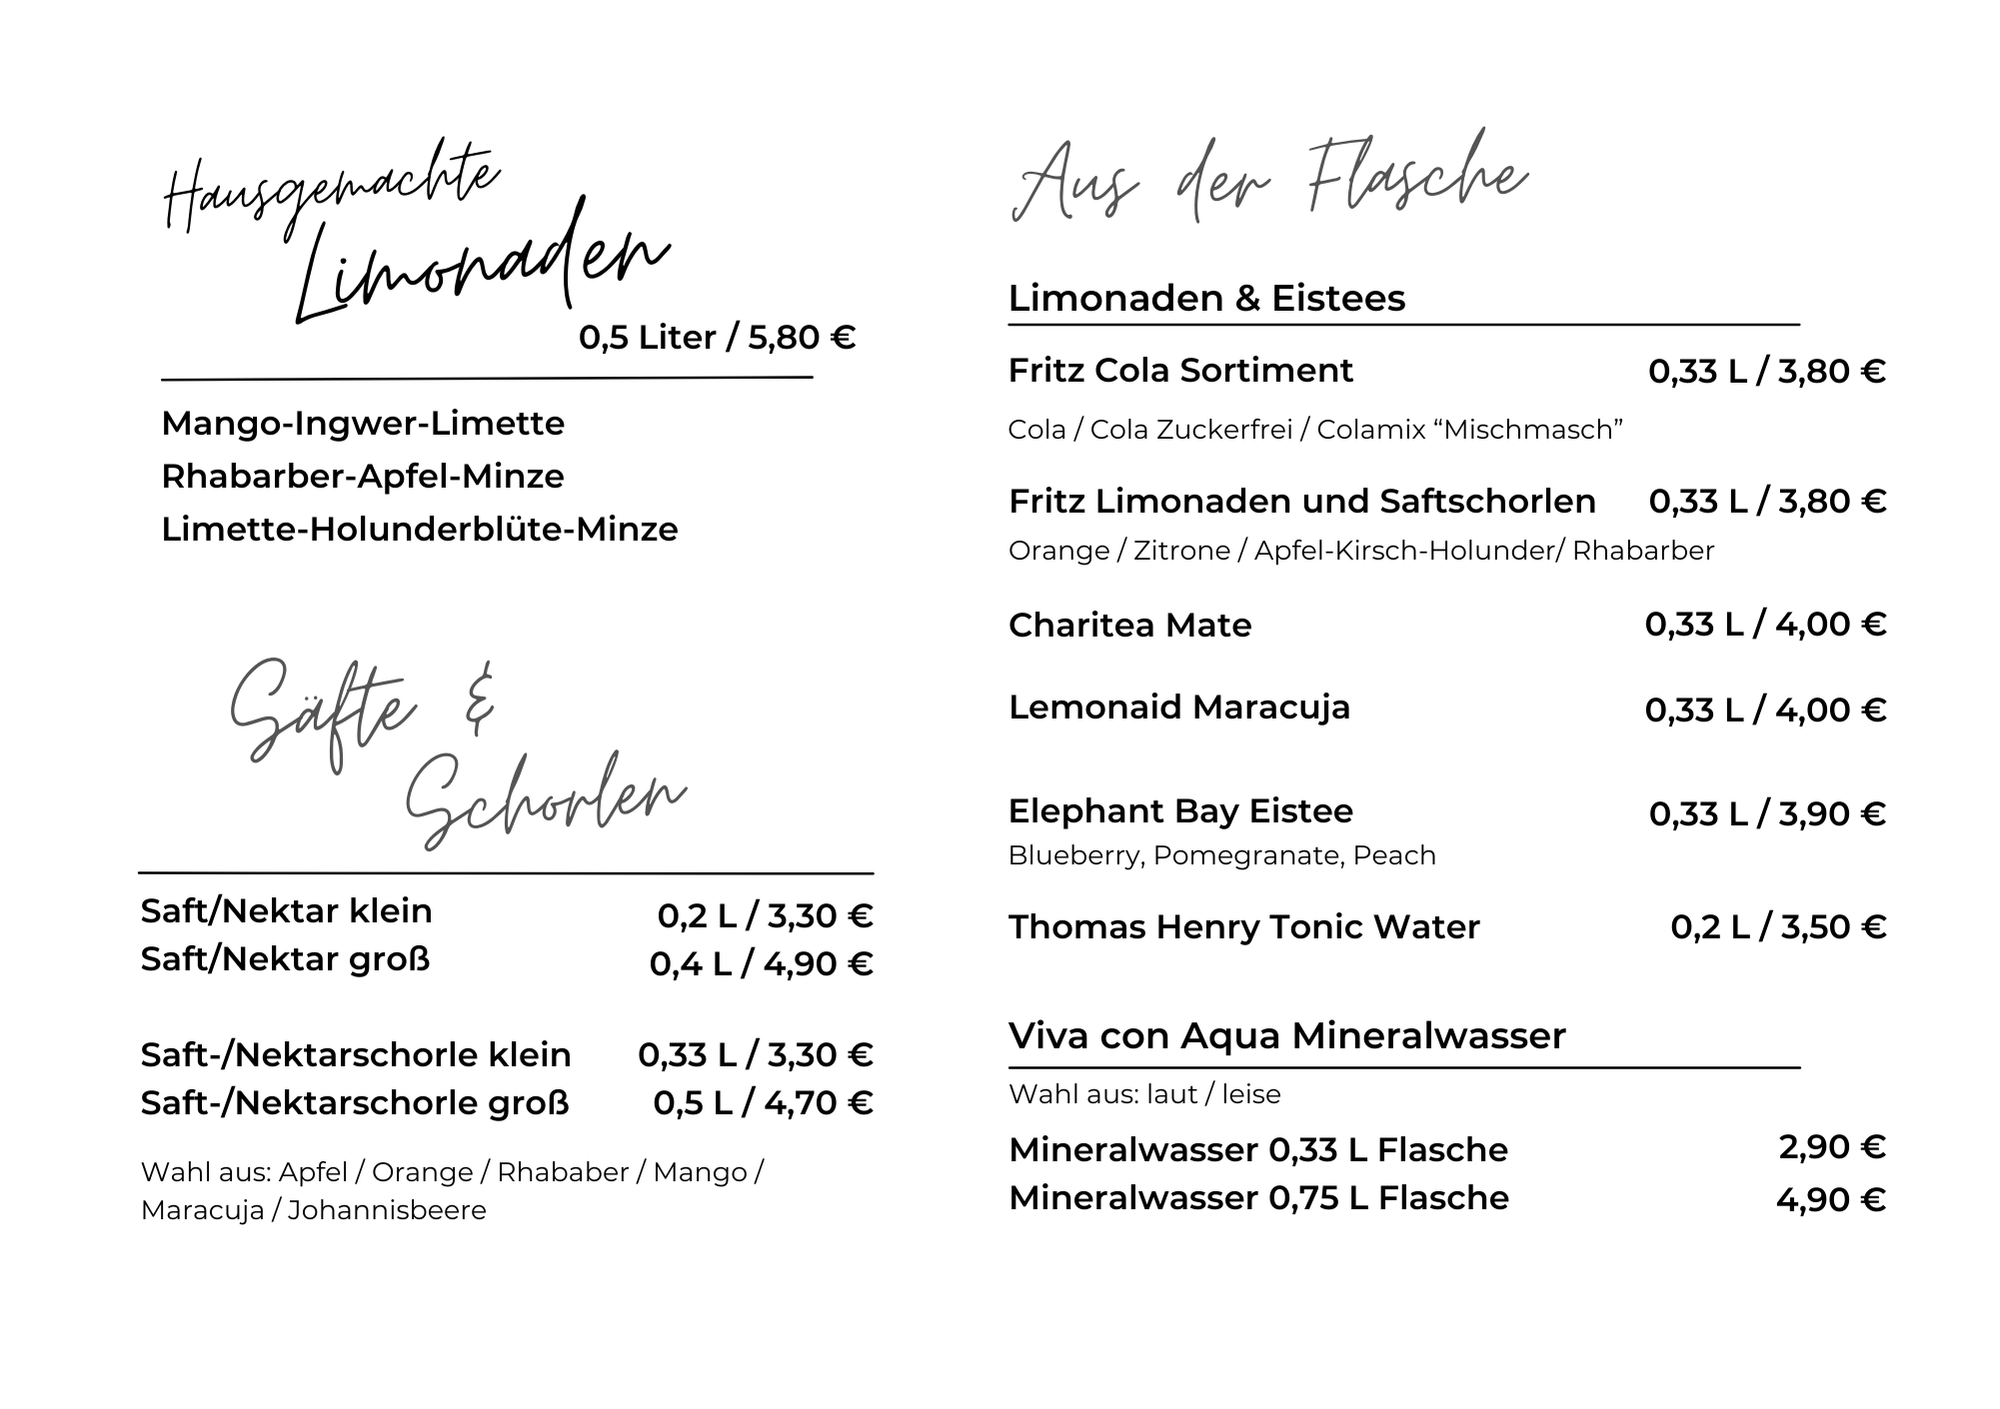 Hausgemachte
Limonaden
0,5 Liter / 5,80 €
Mango-Ingwer-Limette
Rhabarber-Apfel-Minze
Limette-Holunderblüte-Minze
Säfte &
Schorlen
Saft/Nektar klein 0,2 L / 3,30 €
Saft/Nektar groß 0,4 L / 4,90 €
Saft-/Nektarschorle klein 0,33 L / 3,30 €
Saft-/Nektarschorle groß 0,5 L / 4,70 €
Wahl aus: Apfel / Orange / Rhababer / Mango /
Maracuja / Johannisbeere
Aus der Flasche
Limonaden & Eistees
Fritz Cola Sortiment 0,33 L / 3,80 €
Cola / Cola Zuckerfrei / Colamix “Mischmasch”
Fritz Limonaden und Saftschorlen 0,33 L / 3,80 €
Orange / Zitrone / Apfel-Kirsch-Holunder/ Rhabarber
Charitea Mate 0,33 L / 4,00 €
Lemonaid Maracuja 0,33 L / 4,00 €
Elephant Bay Eistee 0,33 L / 3,90 €
Blueberry, Pomegranate, Peach
Thomas Henry Tonic Water 0,2 L / 3,50 €
Viva con Aqua Mineralwasser
Wahl aus: laut / leise
Mineralwasser 0,33 L Flasche 2,90 €
Mineralwasser 0,75 L Flasche 4,90 €